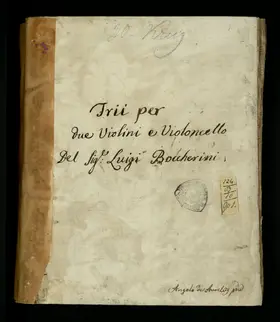 Trii per
due Violini e Violoncello
Del Sig.r Luigi Boccherini
Angelo de